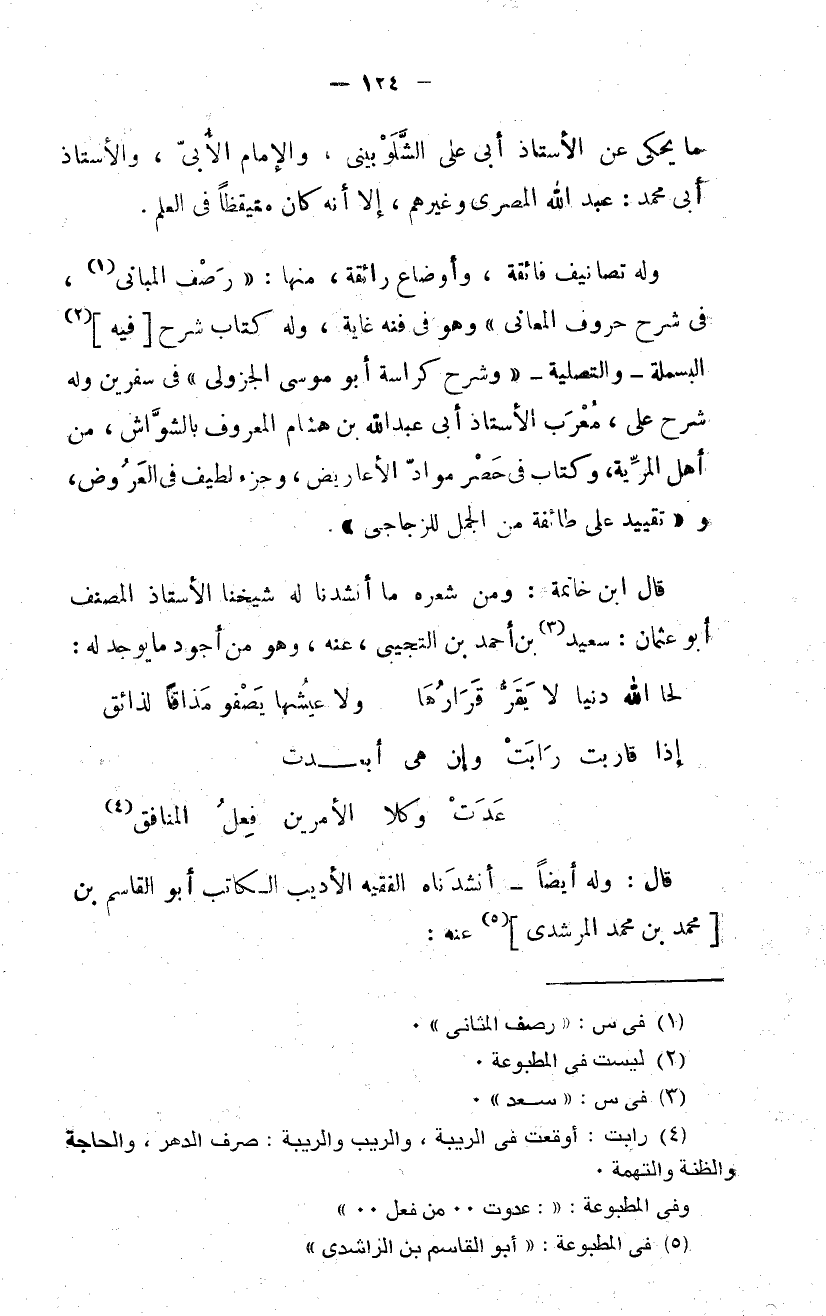 — ١٢٤ —
ما يحكى عن الأستاذ أبى على الشَّلَوْبينى ، والإمام الأُبىّ ، والأستاذ
أبى محمد : عبد الله المصرى وغيرهم ، إلا أنه كان متيقظاً فى العلم .
وله تصانيف فائقة ، وأوضاع رائقة ، منها : « رَصْف المبانى(١) ،
فى شرح حروف المعانى » وهو فى فنه غاية ، وله كتاب شرح [ فيه ](٢)
البسملة ـ والتصلية ـ « وشرح كراسة أبو موسى الجزولى » فى سفرين وله
شرح على ، مُغْرَب الأستاذ أبى عبدالله بن هشام المعروف بالشوَّاش ، من
أهل المرِّية، وكتاب فى حَصْر موادّ الأعاريض ، وجزء لطيف فى العَرُوض،
و « تقييد على طائفة من الجمل للزجاجى » .
قال ابن خاتمة : ومن شعره ما أنشدنا له شيخنا الأستاذ المصنف
أبو عثمان : سعيد(٣) بن أحمد بن التجيبى ، عنه ، وهو من أجود مايوجد له :
لحا الله دنيا لا يَقَرُّ قَرَارُهَا ولا عيشُها يَصْفو مَذاقاً لذائق
إذا قاربت رَابَتْ وإن هى أبعـــدت
عَدَتْ وكلا الأمرين فِعلُ المنافق(٤)
قال : وله أيضاً ـ أنشدَناه الفقيه الأديب الـكاتب أبو القاسم بن
[ محمد بن محمد المرشدى ](٥) عنه :
(١) فى س : « رصف المثانى » ٠
(٢) ليست فى المطبوعة ٠
(٣) فى س : « سـعد » ٠
(٤) رابت : أوقعت فى الريبة ، والريب والريبة : صرف الدهر ، والحاجة
والظنة والتهمة ٠
وفى المطبوعة : « : عدوت ٠٠ من فعل ٠٠ »
(٥) فى المطبوعة : « أبو القاسم بن الراشدى »